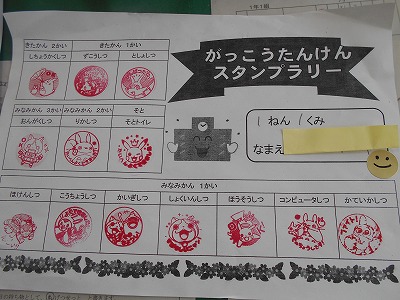 がっこうたんけん
スタンプラリー
1ねん 1くみ
なまえ
きたかん 2かい
きたかん 1かい
しちょうかくしつ
ずこうしつ
としょしつ
みなみかん 3かい
みなみかん 2かい
そと
おんがくしつ
りかしつ
そとトイレ
みなみかん 1かい
ほけんしつ
こうちょうしつ
かいぎしつ
しょくいんしつ
ほうそうしつ
コンピュータしつ
かていかしつ